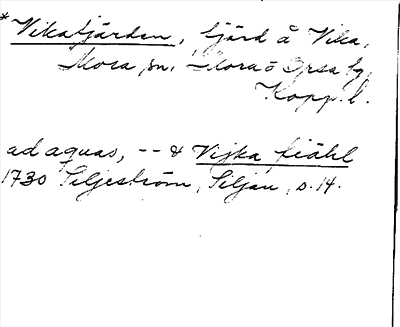 *Vikafjärden, fjärd å Vika,
Mora sn, Mora o Orsa tg,
Kopp. l.
ad aquas, -- & Vijka fiähl
1730 Siljeström, Siljan, s. 14.